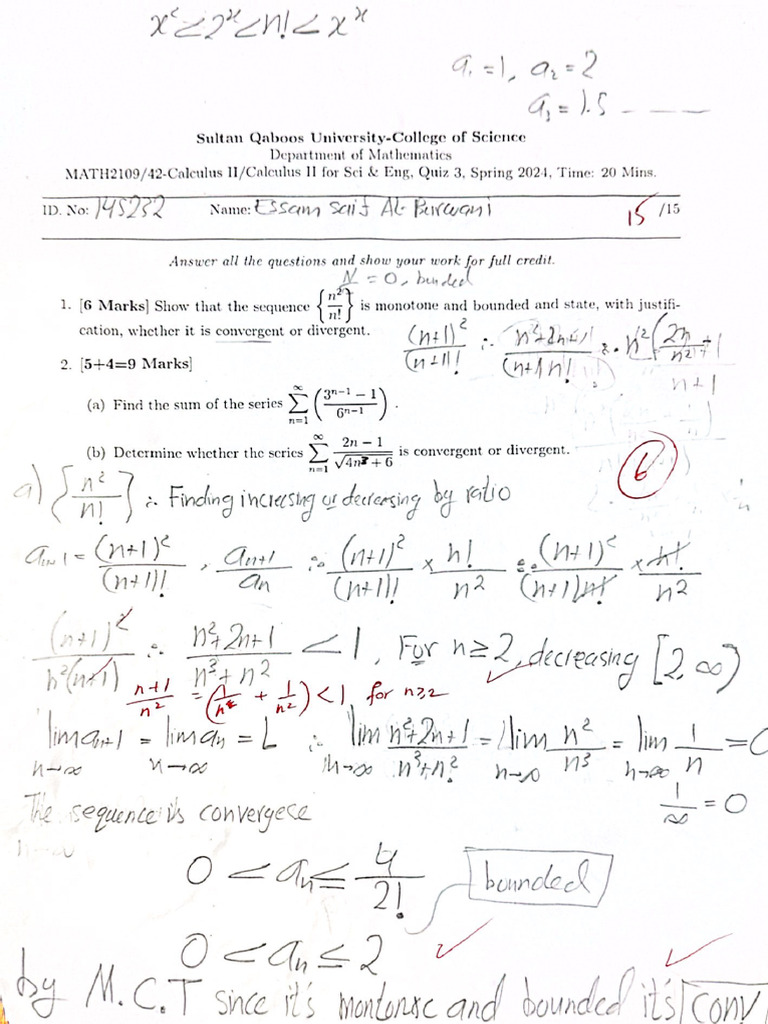 x² < 2ˣ < n! < xˣ
a₁ = 1, a₂ = 2
a₃ = 1.5 - - - -
Sultan Qaboos University-College of Science
Department of Mathematics
MATH2109/42-Calculus II/Calculus II for Sci & Eng, Quiz 3, Spring 2024, Time: 20 Mins.
ID. No: 145232 Name: Essam Saif Al-Burwani 15 /15
Answer all the questions and show your work for full credit.
N = 0, bunded
1. [6 Marks] Show that the sequence {n²/n!} is monotone and bounded and state, with justifi-
cation, whether it is convergent or divergent.
(n+1)²/(n+1)! ∴ n²+2n+1/(n+1 n!) n²(2n/n² + 1/n+1
2. [5+4=9 Marks]
(a) Find the sum of the series ∑_{n=1}^{∞} ((3ⁿ⁻¹ − 1)/6ⁿ⁻¹).
(b) Determine whether the series ∑_{n=1}^{∞} (2n − 1)/√(4n³ + 6) is convergent or divergent.
6
a) {n²/n!} ∴ Finding increcsing or decrecsing by ratio
aₙ₊₁ = (n+1)²/(n+1)! , aₙ₊₁/aₙ ∴ (n+1)²/(n+1)! × n!/n² ∴ (n+1)²/(n+1)n! × n!/n²
(n+1)²/n²(n+1) ∴ n²+2n+1/n³+n² < 1, For n ≥ 2, decreasing [2 ∞)
n+1/n² = (1/n + 1/n²) < 1 for n≥2
lim aₙ₊₁ = lim aₙ = L ∴ lim n²+2n+1/n³+n² = lim n²/n³ = lim 1/n = 0
n→∞ n→∞ n→∞ n→∞ n→∞
1/∞ = 0
The sequence is convergece
0 < aₙ ≤ 4/2! bounded
0 < aₙ ≤ 2
by M.C.T since it's montonic and bounded it's conv